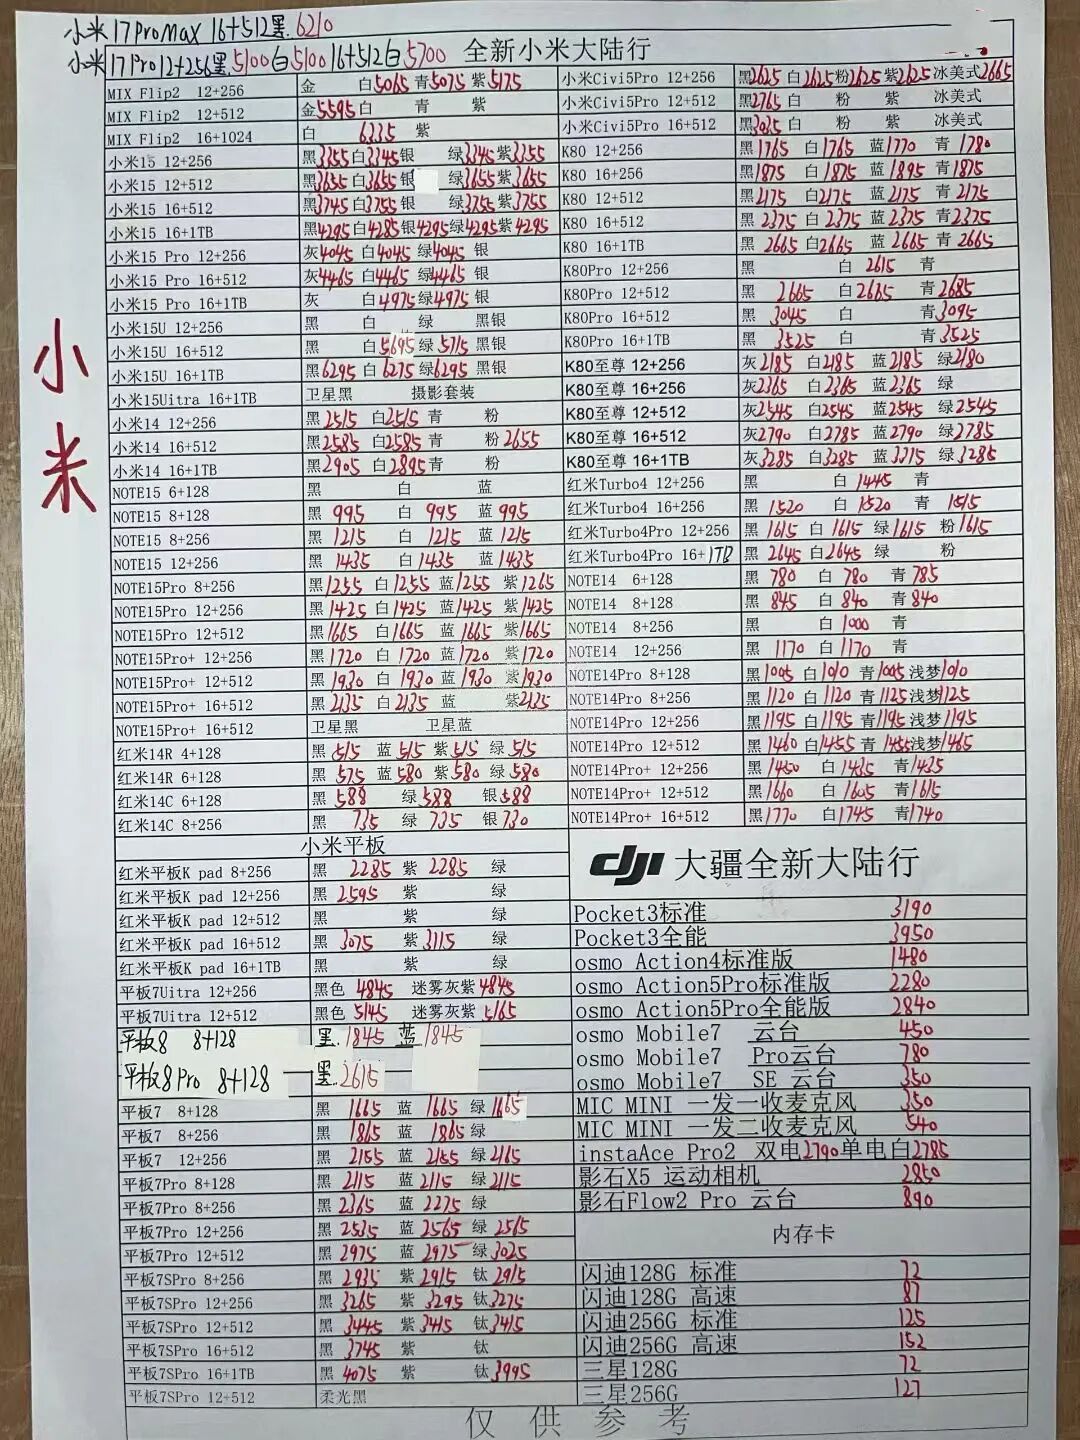 小米17ProMax 16+512黑.6210
小米17Pro12+256黑.5100白5100 16+512白5700
全新小米大陆行
小米
MIX Flip2 12+256 金 白5065 青5075 紫5175
MIX Flip2 12+512 金5595白 青 紫
MIX Flip2 16+1024 白 6335 紫
小米15 12+256 黑3355白3345银 绿3345紫3355
小米15 12+512 黑3655白3655银 绿3655紫3655
小米15 16+512 黑3745白3755银 绿3755紫3755
小米15 16+1TB 黑4295白4285银4295绿4295紫4295
小米15 Pro 12+256 灰4045 白4045绿4045 银
小米15 Pro 16+512 灰4465 白4465绿4465 银
小米15 Pro 16+1TB 灰 白4975绿4975 银
小米15U 12+256 黑 白 绿 黑银
小米15U 16+512 黑 白5695绿5715黑银
小米15U 16+1TB 黑6295 白6275绿6295 黑银
小米15Uitra 16+1TB 卫星黑 摄影套装
小米14 12+256 黑2515 白2515 青 粉
小米14 16+512 黑2585 白2585青 粉2655
小米14 16+1TB 黑2905 白2895青 粉
NOTE15 6+128 黑 白 蓝
NOTE15 8+128 黑 995 白 995 蓝995
NOTE15 8+256 黑 1215 白 1215 蓝1215
NOTE15 12+256 黑 1435 白 1435 蓝1435
NOTE15Pro 8+256 黑1255 白1255 蓝1255 紫1265
NOTE15Pro 12+256 黑1425 白1425 蓝1425 紫1425
NOTE15Pro 12+512 黑1665 白1665 蓝1665 紫1665
NOTE15Pro+ 12+256 黑1720 白1720 蓝1720 紫1720
NOTE15Pro+ 12+512 黑1930 白1930 蓝1930 紫1930
NOTE15Pro+ 16+512 黑2135 白2135 蓝 紫2135
NOTE15Pro+ 16+512 卫星黑 卫星蓝
红米14R 4+128 黑 515 蓝515 紫515 绿515
红米14R 6+128 黑 575 蓝580 紫580 绿580
红米14C 6+128 黑 588 绿588 银588
红米14C 8+256 黑 735 绿 735 银730
小米平板
红米平板K pad 8+256 黑 2285 紫 2285 绿
红米平板K pad 12+256 黑 2595 紫 绿
红米平板K pad 12+512 黑 紫 绿
红米平板K pad 16+512 黑 3075 紫3115 绿
红米平板K pad 16+1TB 黑 紫 绿
平板7Uitra 12+256 黑色 4845 迷雾灰紫4845
平板7Uitra 12+512 黑色 5145 迷雾灰紫5165
平板8 8+128 黑.1845 蓝1845
平板8Pro 8+128 黑.2615
平板7 8+128 黑 1665 蓝 1665 绿1665
平板7 8+256 黑 1865 蓝 1865绿
平板7 12+256 黑 2155 蓝 2155 绿2165
平板7Pro 8+128 黑 2115 蓝 2115 绿2115
平板7Pro 8+256 黑 2365 蓝 2275 绿
平板7Pro 12+256 黑 2535 蓝 2565 绿2565
平板7Pro 12+512 黑 2975 蓝 2975绿3025
平板7SPro 8+256 黑 2935 紫2915 钛2915
平板7SPro 12+256 黑 3265 紫3295 钛3275
平板7SPro 12+512 黑 3445 紫3415 钛3415
平板7SPro 16+512 黑 3745 紫 钛
平板7SPro 16+1TB 黑 4075 紫 钛3995
平板7SPro 12+512 柔光黑
小米Civi5Pro 12+256 黑2625 白2625粉2625紫2625冰美式2665
小米Civi5Pro 12+512 黑2765 白 粉 紫 冰美式
小米Civi5Pro 16+512 黑3035 白 粉 紫 冰美式
K80 12+256 黑1765 白1765 蓝1770 青1780
K80 16+256 黑1875 白1875 蓝1895 青1875
K80 12+512 黑2175 白2175 蓝2175 青2175
K80 16+512 黑2375 白2375 蓝2375 青2375
K80 16+1TB 黑2665 白2665 蓝2665 青2665
K80Pro 12+256 黑 白 2615 青
K80Pro 12+512 黑 2665 白2665 青2685
K80Pro 16+512 黑 3045 白 青3095
K80Pro 16+1TB 黑 3525 白 青3525
K80至尊 12+256 灰2185 白2185 蓝2185 绿2180
K80至尊 16+256 灰2365 白2365 蓝2365 绿
K80至尊 12+512 灰2545 白2545 蓝2545 绿2545
K80至尊 16+512 灰2790 白2785 蓝2790 绿2785
K80至尊 16+1TB 灰3285 白3285 蓝3315 绿3285
红米Turbo4 12+256 黑 白1445 青
红米Turbo4 16+256 黑1520 白1520 青1515
红米Turbo4Pro 12+256 黑1615 白1615 绿1615 粉1615
红米Turbo4Pro 16+1TB 黑2645 白2645 绿 粉
NOTE14 6+128 黑 780 白 780 青785
NOTE14 8+128 黑 845 白 840 青840
NOTE14 8+256 黑 白1000 青
NOTE14 12+256 黑 1170 白1170 青
NOTE14Pro 8+128 黑1005 白1010 青1005浅梦1010
NOTE14Pro 8+256 黑1120 白1120 青1125浅梦1125
NOTE14Pro 12+256 黑1195 白1195 青1195浅梦1195
NOTE14Pro 12+512 黑1460 白1455 青1455浅梦1465
NOTE14Pro+ 12+256 黑1450 白1435 青1435
NOTE14Pro+ 12+512 黑1660 白1605 青1615
NOTE14Pro+ 16+512 黑1770 白1745 青1740
dji 大疆全新大陆行
Pocket3标准 3190
Pocket3全能 3950
osmo Action4标准版 1480
osmo Action5Pro标准版 2280
osmo Action5Pro全能版 2840
osmo Mobile7 云台 450
osmo Mobile7 Pro云台 780
osmo Mobile7 SE 云台 350
MIC MINI 一发一收麦克风 350
MIC MINI 一发二收麦克风 540
instaAce Pro2 双电2790单电白2785
影石X5 运动相机 2850
影石Flow2 Pro 云台 890
内存卡
闪迪128G 标准 72
闪迪128G 高速 87
闪迪256G 标准 125
闪迪256G 高速 152
三星128G 72
三星256G 127
仅供参考